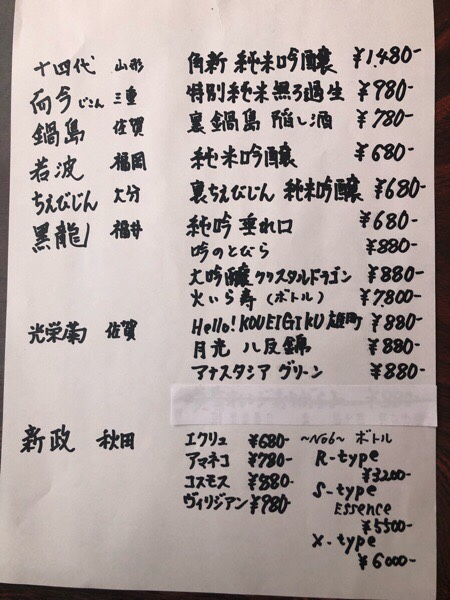 十四代 山形 角新 純米吟醸 ¥1,480-
而今じこん 三重 特別純米無ろ過生 ¥980-
鍋島 佐賀 裏鍋島 隠し酒 ¥780-
若波 福岡 純米吟醸 ¥680-
ちえびじん 大分 裏ちえびじん 純米吟醸 ¥680-
黒龍 福井 純吟 垂れ口 ¥680-
吟のとびら ¥880-
大吟醸クリスタルドラゴン ¥880-
火いら寿 (ボトル) ¥7800-
光栄菊 佐賀 Hello! KOUEIGIKU 雄町 ¥880-
月光 八反錦 ¥880-
アナスタシア グリーン ¥880-
新政 秋田 エクリュ ¥680- ~No6~ ボトル
アマネコ ¥780- R-type
¥3200-
コスモス ¥880- S-type
Essence
ヴィリジアン ¥980- ¥5500-
X-type
¥6000-